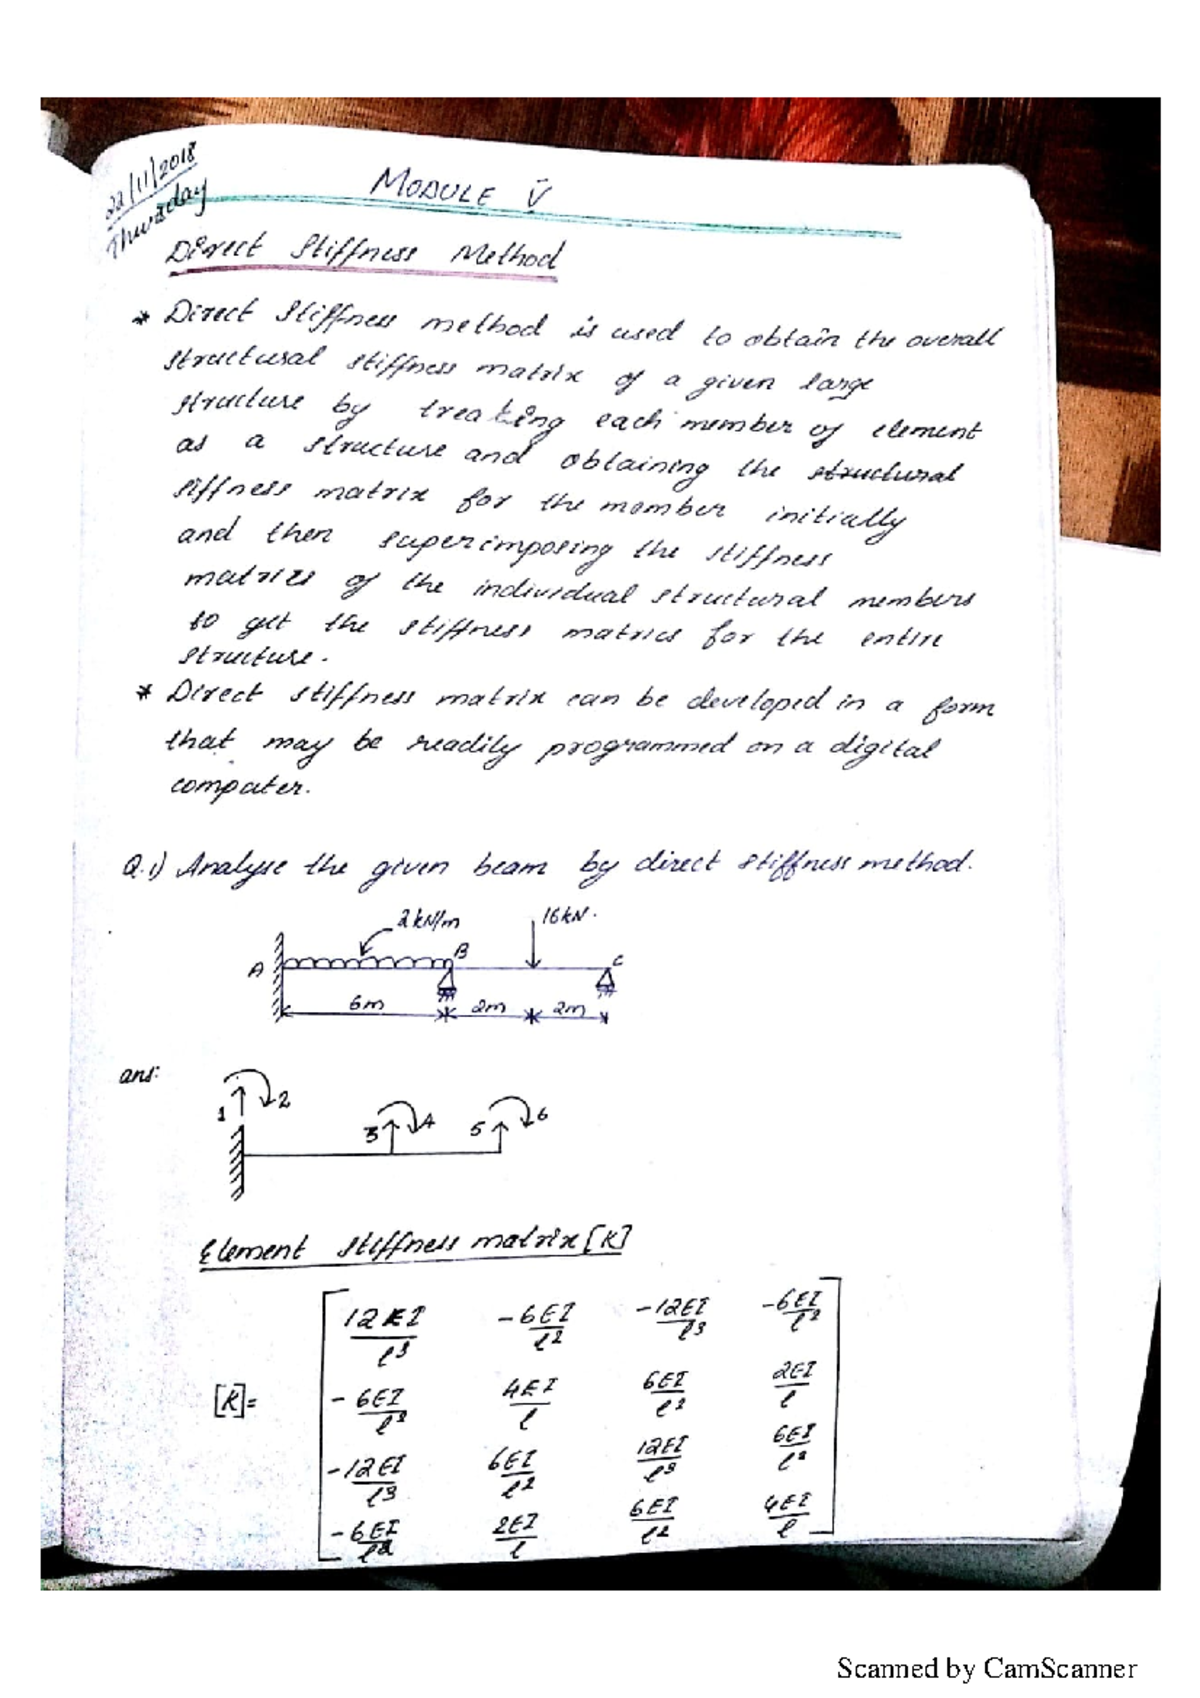 22/11/2018
Thursday
MODULE V
Direct Stiffness Method
* Direct Stiffness method is used to obtain the overall
structural stiffness matrix of a given large
structure by treating each member of element
as a structure and obtaining the structural
siffness matrix for the member initially
and then superimposing the stiffness
matrixs of the individual structural members
to get the stiffness matrics for the entire
structure.
* Direct stiffness matrix can be developed in a form
that may be readily programmed on a digital
computer.
Q.1) Analyse the given beam by direct stiffness method.
2kN/m 16kN.
A B C
6m 2m 2m
ans:
1 2 3 4 5 6
Element stiffness matrix [K]
[K]=
12EI/l³ -6EI/l² -12EI/l³ -6EI/l²
-6EI/l² 4EI/l 6EI/l² 2EI/l
-12EI/l³ 6EI/l² 12EI/l³ 6EI/l²
-6EI/l² 2EI/l 6EI/l² 4EI/l
Scanned by CamScanner